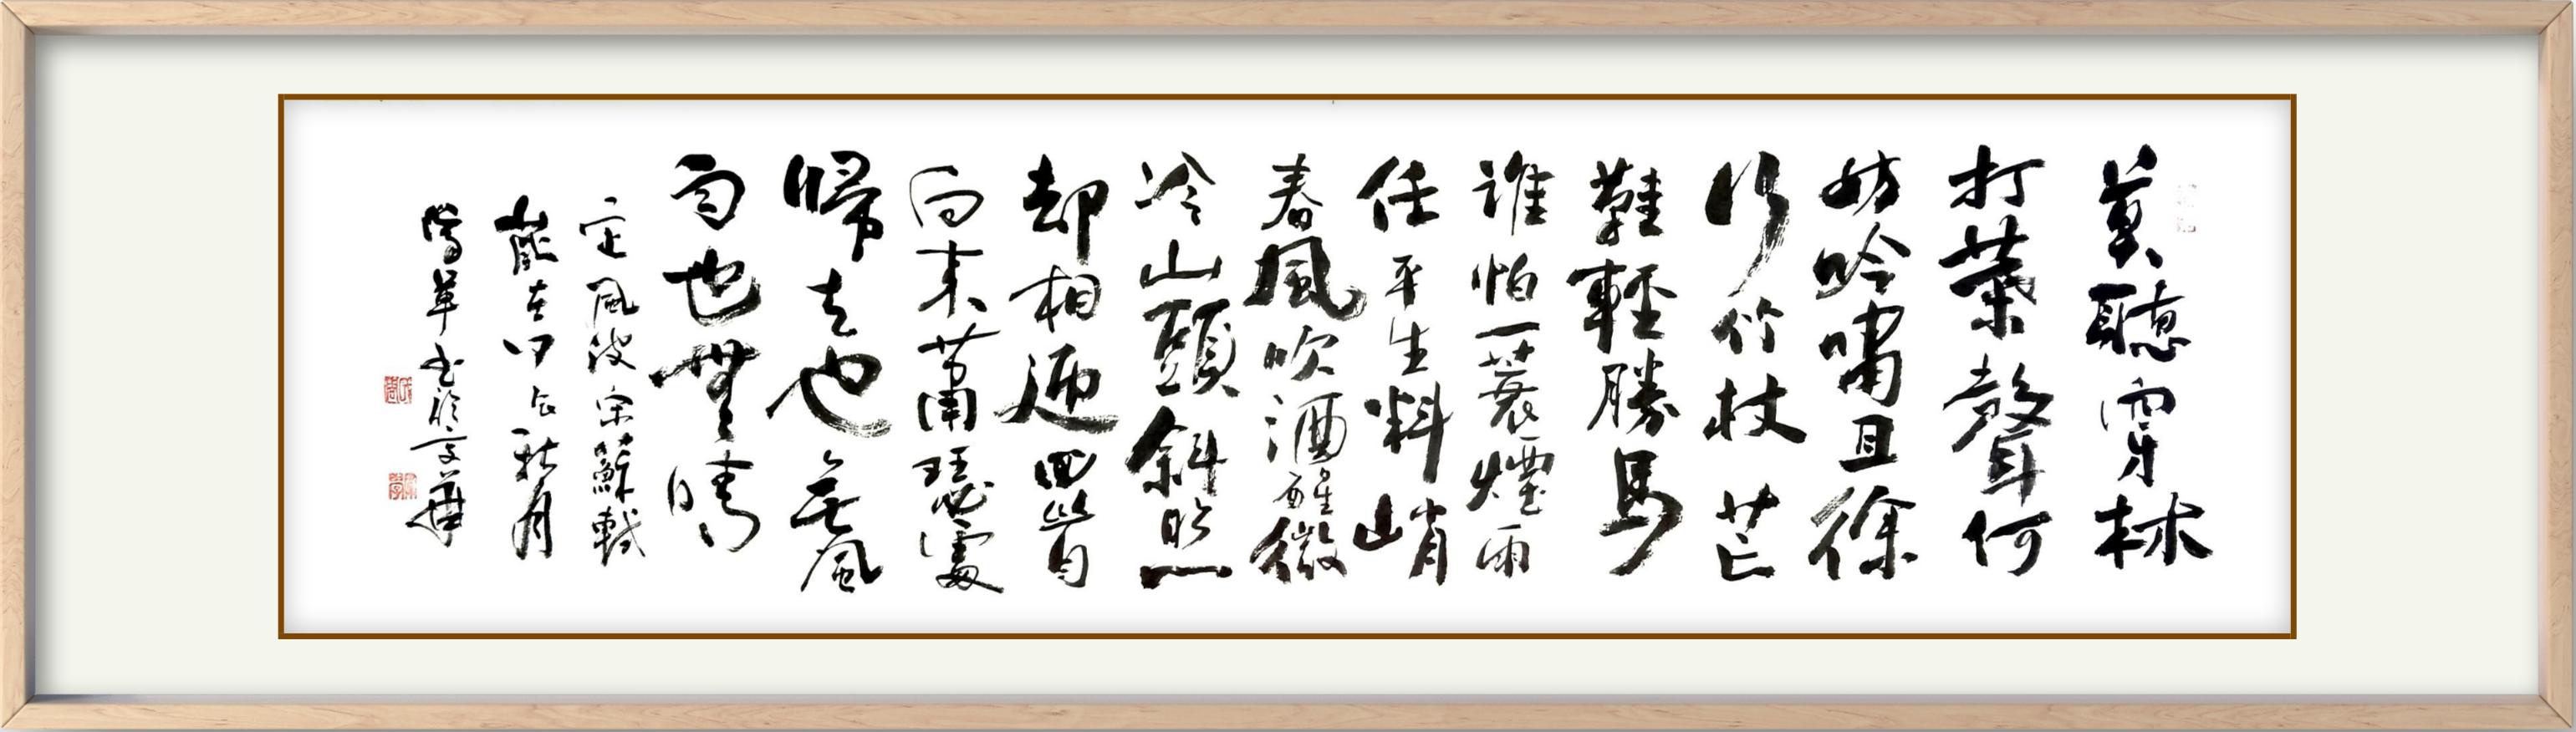 莫聽穿林
打葉聲何
妨吟嘯且徐
行竹杖芒
鞋輕勝馬
誰怕一蓑煙雨
任平生料峭
春風吹酒醒微
冷山頭斜照
却相迎回首
向来蕭瑟處
歸去也無風
雨也無晴
定風波宋蘇軾
歲在甲辰秋月
學華書於